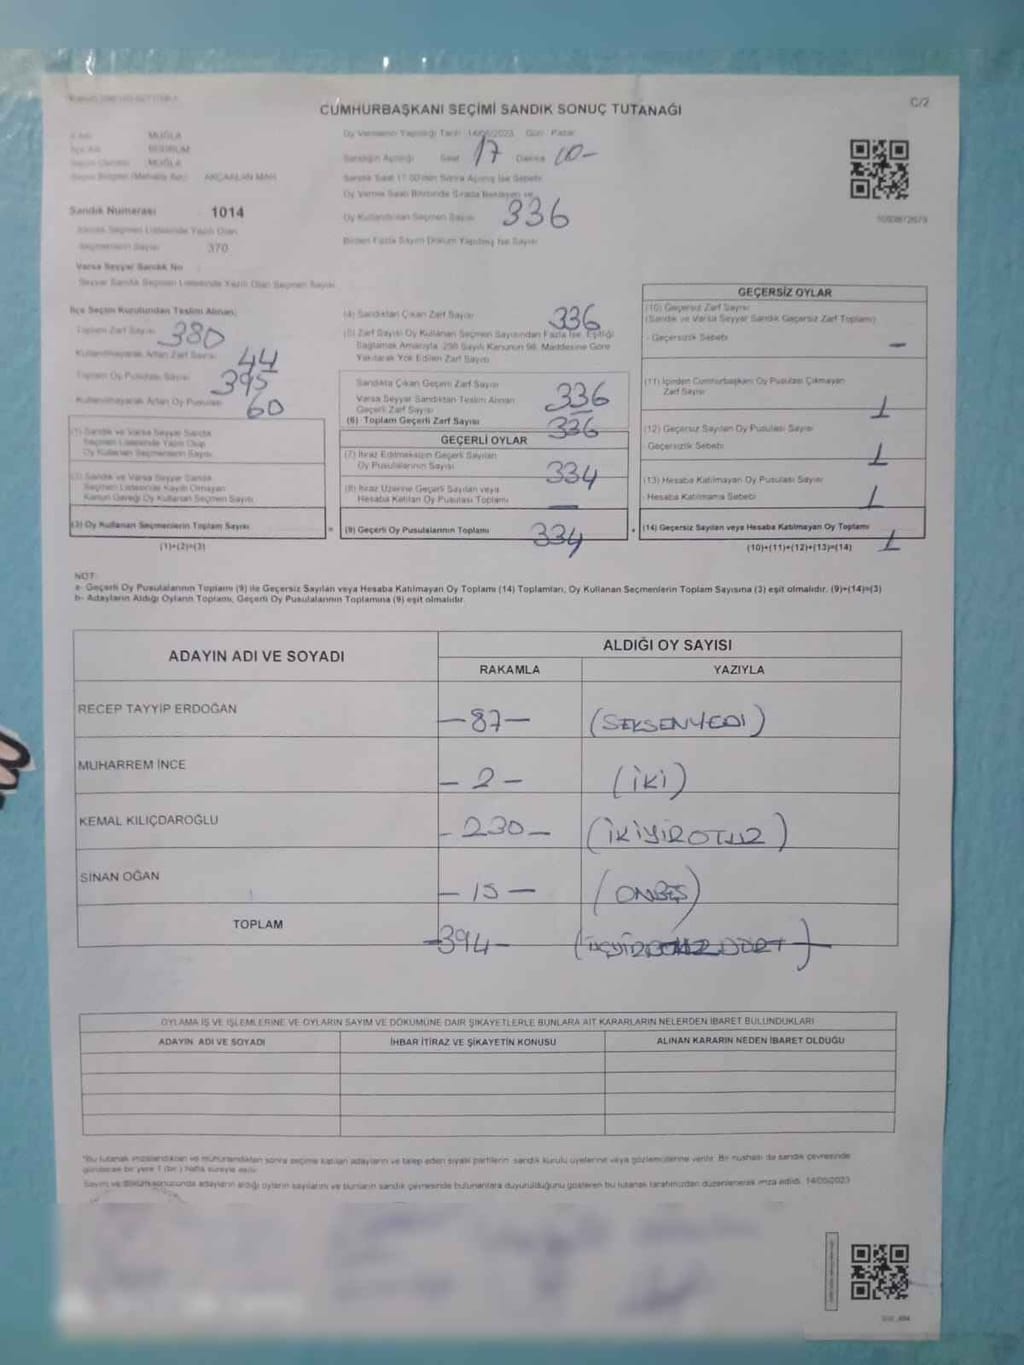 CUMHURBAŞKANI SEÇİMİ SANDIK SONUÇ TUTANAĞI
C/2
İli Adı MUĞLA
İlçe Adı BODRUM
Seçim Çevresi MUĞLA
Oy Vermenin Yapıldığı Tarih 14/05/2023 Gün Pazar
Sandığın Açıldığı Saat 17 Dakika 10-
Sandık Saat 17.00'den Sonra Açılmış İse Sebebi
Sandık Numarası 1014
Oy Kullandırılan Seçmen Sayısı 336
Sandık Seçmen Listesinde Yazılı Olan
Seçmenlerin Sayısı 370
Birden Fazla Sayım Döküm Yapılmış İse Sayısı
Varsa Seyyar Sandık No
Seyyar Sandık Seçmen Listesinde Yazılı Olan Seçmen Sayısı
İlçe Seçim Kurulundan Teslim Alınan;
Toplam Zarf Sayısı 380
Kullanılmayarak Artan Zarf Sayısı 44
Toplam Oy Pusulası Sayısı 395
Kullanılmayarak Artan Oy Pusulası 60
(1) Sandık ve Varsa Seyyar Sandık
Seçmen Listesinde Yazılı Olup
Oy Kullanan Seçmenlerin Sayısı
(2) Sandık ve Varsa Seyyar Sandık
Seçmen Listesinde Kayıtlı Olmayan
Kanun Gereği Oy Kullanan Seçmen Sayısı
(3) Oy Kullanan Seçmenlerin Toplam Sayısı
(1)+(2)=(3)
(4) Sandıktan Çıkan Zarf Sayısı 336
(5) Zarf Sayısı Oy Kullanan Seçmen Sayısından Fazla İse, Eşitliği
Sağlamak Amacıyla, 298 Sayılı Kanunun 98. Maddesine Göre
Yakılarak Yok Edilen Zarf Sayısı
Sandıkta Çıkan Geçerli Zarf Sayısı 336
Varsa Seyyar Sandıktan Teslim Alınan
Geçerli Zarf Sayısı —
(6) Toplam Geçerli Zarf Sayısı 336
GEÇERLİ OYLAR
(7) İtiraz Edilmeksizin Geçerli Sayılan
Oy Pusulalarının Sayısı 334
(8) İtiraz Üzerine Geçerli Sayılan veya
Hesaba Katılan Oy Pusulası Toplamı —
(9) Geçerli Oy Pusulalarının Toplamı 334
GEÇERSİZ OYLAR
(10) Geçersiz Zarf Sayısı
(Sandık ve Varsa Seyyar Sandık Geçersiz Zarf Toplamı)
- Geçersizlik Sebebi —
(11) İçinden Cumhurbaşkanı Oy Pusulası Çıkmayan
Zarf Sayısı 1
(12) Geçersiz Sayılan Oy Pusulası Sayısı
Geçersizlik Sebebi 1
(13) Hesaba Katılmayan Oy Pusulası Sayısı
- Hesaba Katılmama Sebebi 1
(14) Geçersiz Sayılan veya Hesaba Katılmayan Oy Toplamı 1
(10)+(11)+(12)+(13)=(14)
NOT:
a- Geçerli Oy Pusulalarının Toplamı (9) ile Geçersiz Sayılan veya Hesaba Katılmayan Oy Toplamı (14) Toplamları, Oy Kullanan Seçmenlerin Toplam Sayısına (3) eşit olmalıdır. (9)+(14)=(3)
b- Adayların Aldığı Oyların Toplamı, Geçerli Oy Pusulalarının Toplamına (9) eşit olmalıdır.
ADAYIN ADI VE SOYADI
ALDIĞI OY SAYISI
RAKAMLA YAZIYLA
RECEP TAYYİP ERDOĞAN -87- (SEKSENYEDİ)
MUHARREM İNCE -2- (İKİ)
KEMAL KILIÇDAROĞLU -230- (İKİYÜZOTUZ)
SİNAN OĞAN -15- (ONBEŞ)
TOPLAM -394-
OYLAMA İŞ VE İŞLEMLERİNE VE OYLARIN SAYIM VE DÖKÜMÜNE DAİR ŞİKAYETLERLE BUNLARA AİT KARARLARIN NELERDEN İBARET BULUNDUKLARI
ADAYIN ADI VE SOYADI İHBAR İTİRAZ VE ŞİKAYETİN KONUSU ALINAN KARARIN NEDEN İBARET OLDUĞU
*Bu tutanak imzalandıktan ve mühürlendikten sonra seçime katılan adayların ve talep eden siyasi partilerin sandık kurulu üyelerine veya gözlemcilerine verilir. Bir nüshası da sandık çevresinde
gönderilen bir yere 1 (bir) hafta süreyle asılır.
Sayım ve döküm sonucunda adayların aldığı oyların sayılarını ve bunların sandık çevresinde bulunanlara duyurulduğunu gösteren bu tutanak tarafımızdan düzenlenerek imza edildi. 14/05/2023